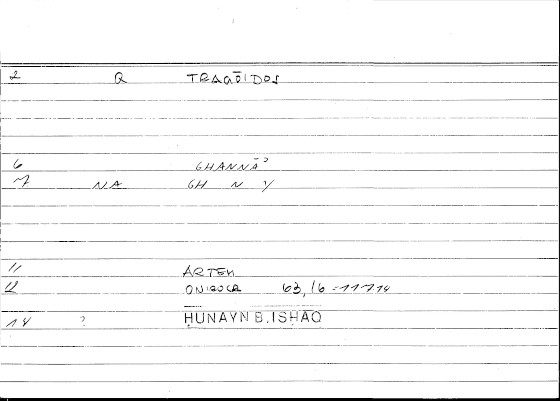 2 Q TRAGŌIDOS
6 GHANNĀʾ
7 NA GH N Y
11 ARTEM
12 ONIROCR 63,16 = 117,14
14 ? ḤUNAYN B. ISḤĀQ